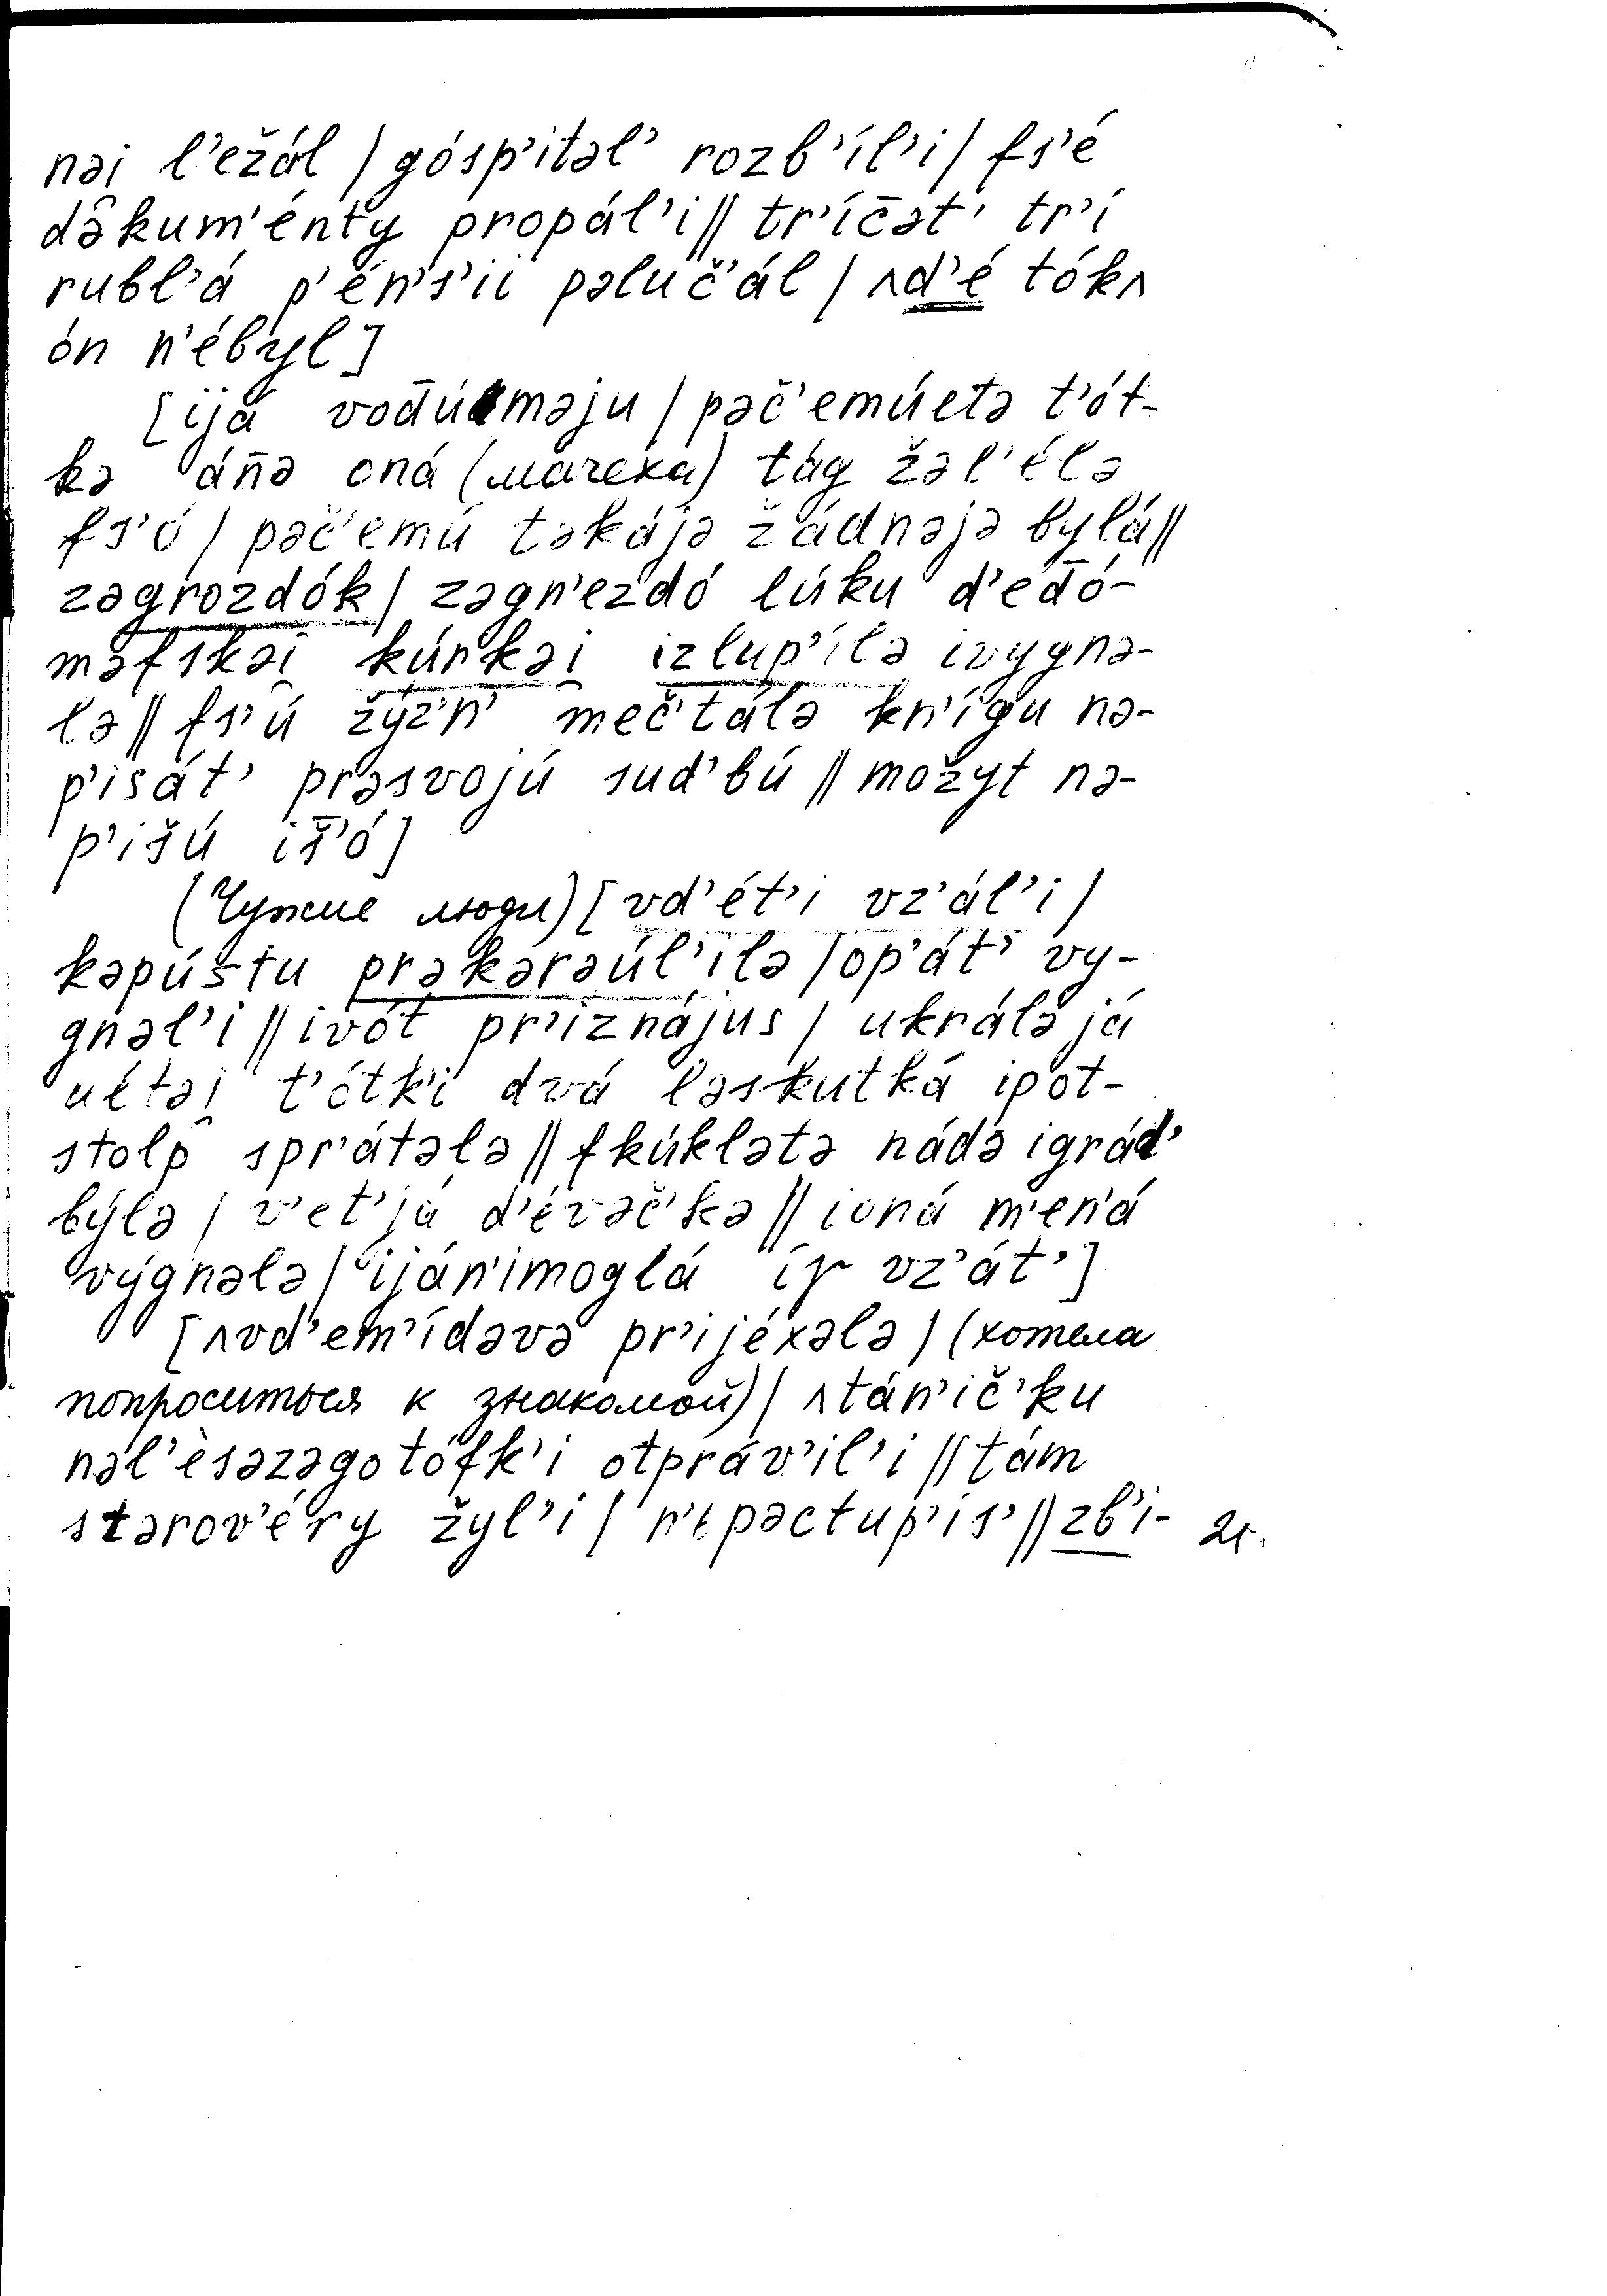 nəi l’ežál / góspʼitəlʼ rozbʼílʼi / fsʼé
də̂kumʼénty propálʼi // trʼíč̄ətʼ trʼí
rublʼá pʼénʼsʼii pəlučʼál / ʌdʼé tókʌ
ón nʼébyl]
[ijá vod̄úməju / pəčʼemúetə tʼót-
kə án̄ə oná (мачеха) tág žəlʼélə
fsʼó / pəčʼemú təkájə žádnəjə bylá //
zəgrozdók / zəgnʼezdó lúku dʼed̄ó-
məfskəi̯ kúrkəi̯ izlupʼílə ivygnə-
lə // fsʼú žýzʼnʼ mečʼtálə knʼígu nə-
pʼisátʼ prəsvojú sudʼbú // možyt nə-
pʼišú iš̄ʼó]
(Чужие люди) [vdʼétʼi vzʼálʼi /
kəpústu prəkərəúlʼilə / opʼátʼ vy-
gnəlʼi // ivót prʼiznájus / ukrálə já
uétəi̯ tʼótkʼi dvá ləskutká ipot-
stolp sprʼátələ // fkúklətə nádə igrádʼ
býlə / vʼetʼjá dʼévəčʼkə // ioná mʼenʼá
výgnələ / ijánʼimoglá íɣ vzʼátʼ]
[ʌvdʼemʼídəvə prʼijéxələ / (хотела
попроситься к знакомой) / ʌtánʼičʼku
nəlʼèsəzəgotófkʼi otprávʼilʼi // tám
stərovʼéry žylʼi / nʼipəctupʼísʼ // zbʼi- 21.